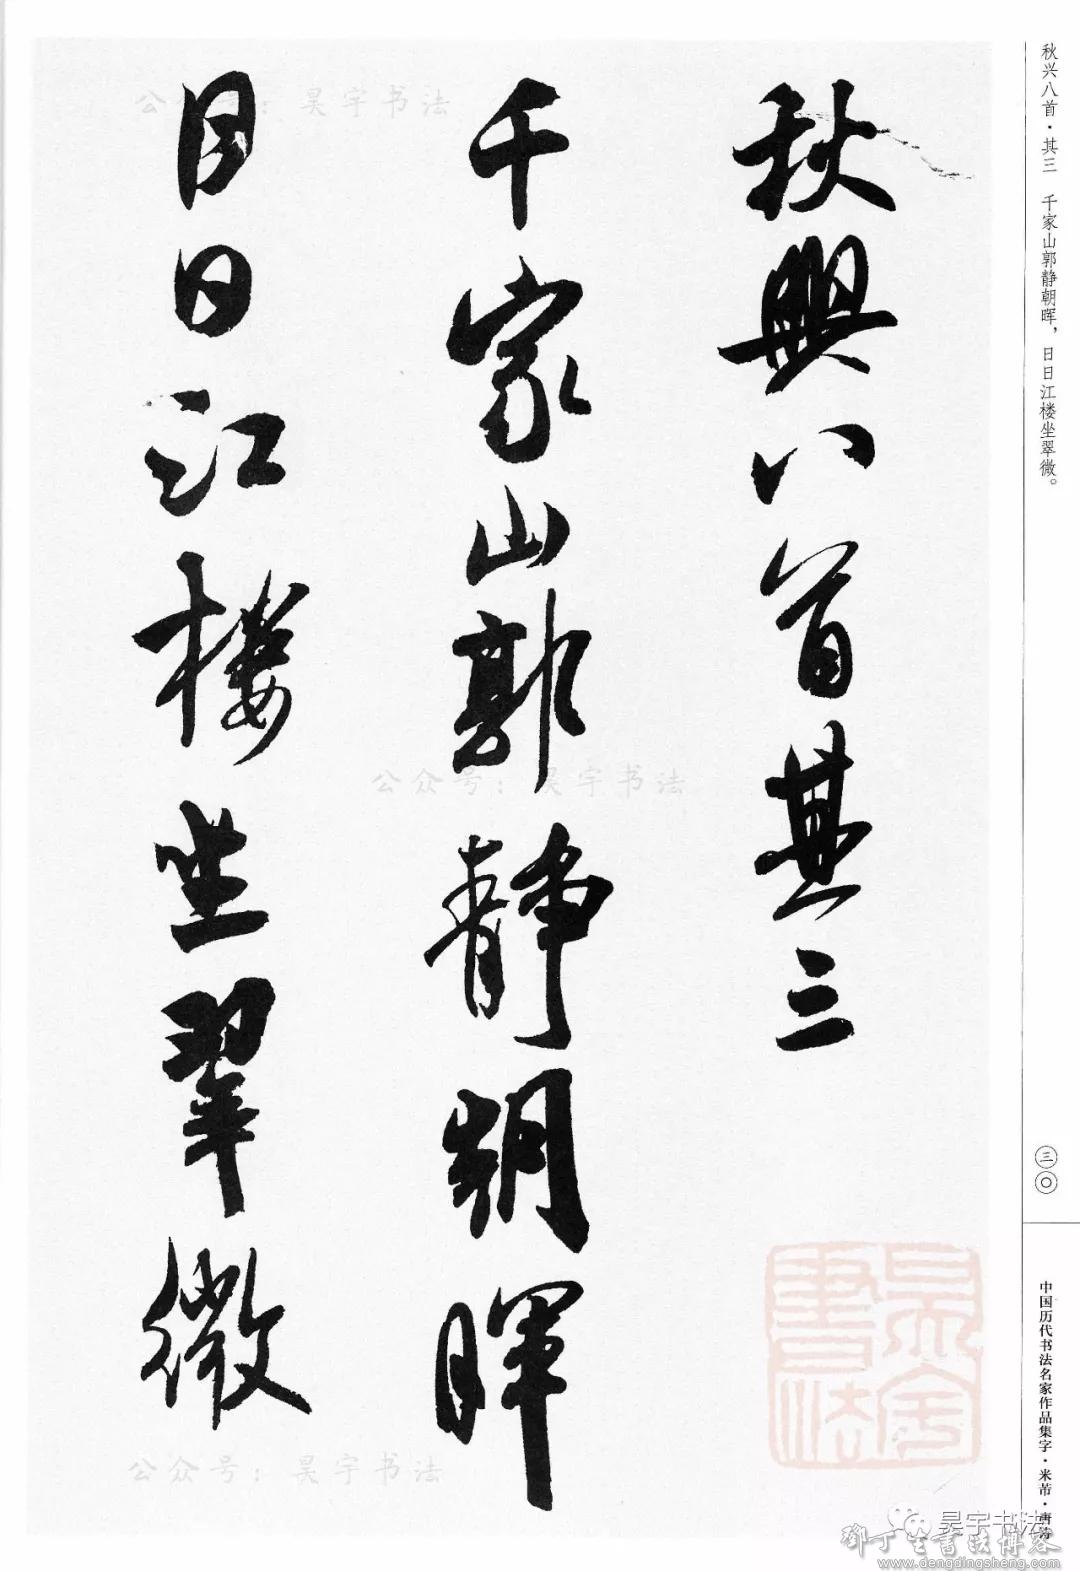 秋兴八首·其三　千家山郭静朝晖，日日江楼坐翠微。
三〇
中国历代书法名家作品集字·米芾·唐诗
秋興八首其三
千家山郭静朝暉
日日江樓坐翠微
公众号：昊宇书法
公众号：昊宇书法
公众号：昊宇书法
昊宇書法
昊宇书法
鄧丁生書法博客
www.dengdingsheng.com